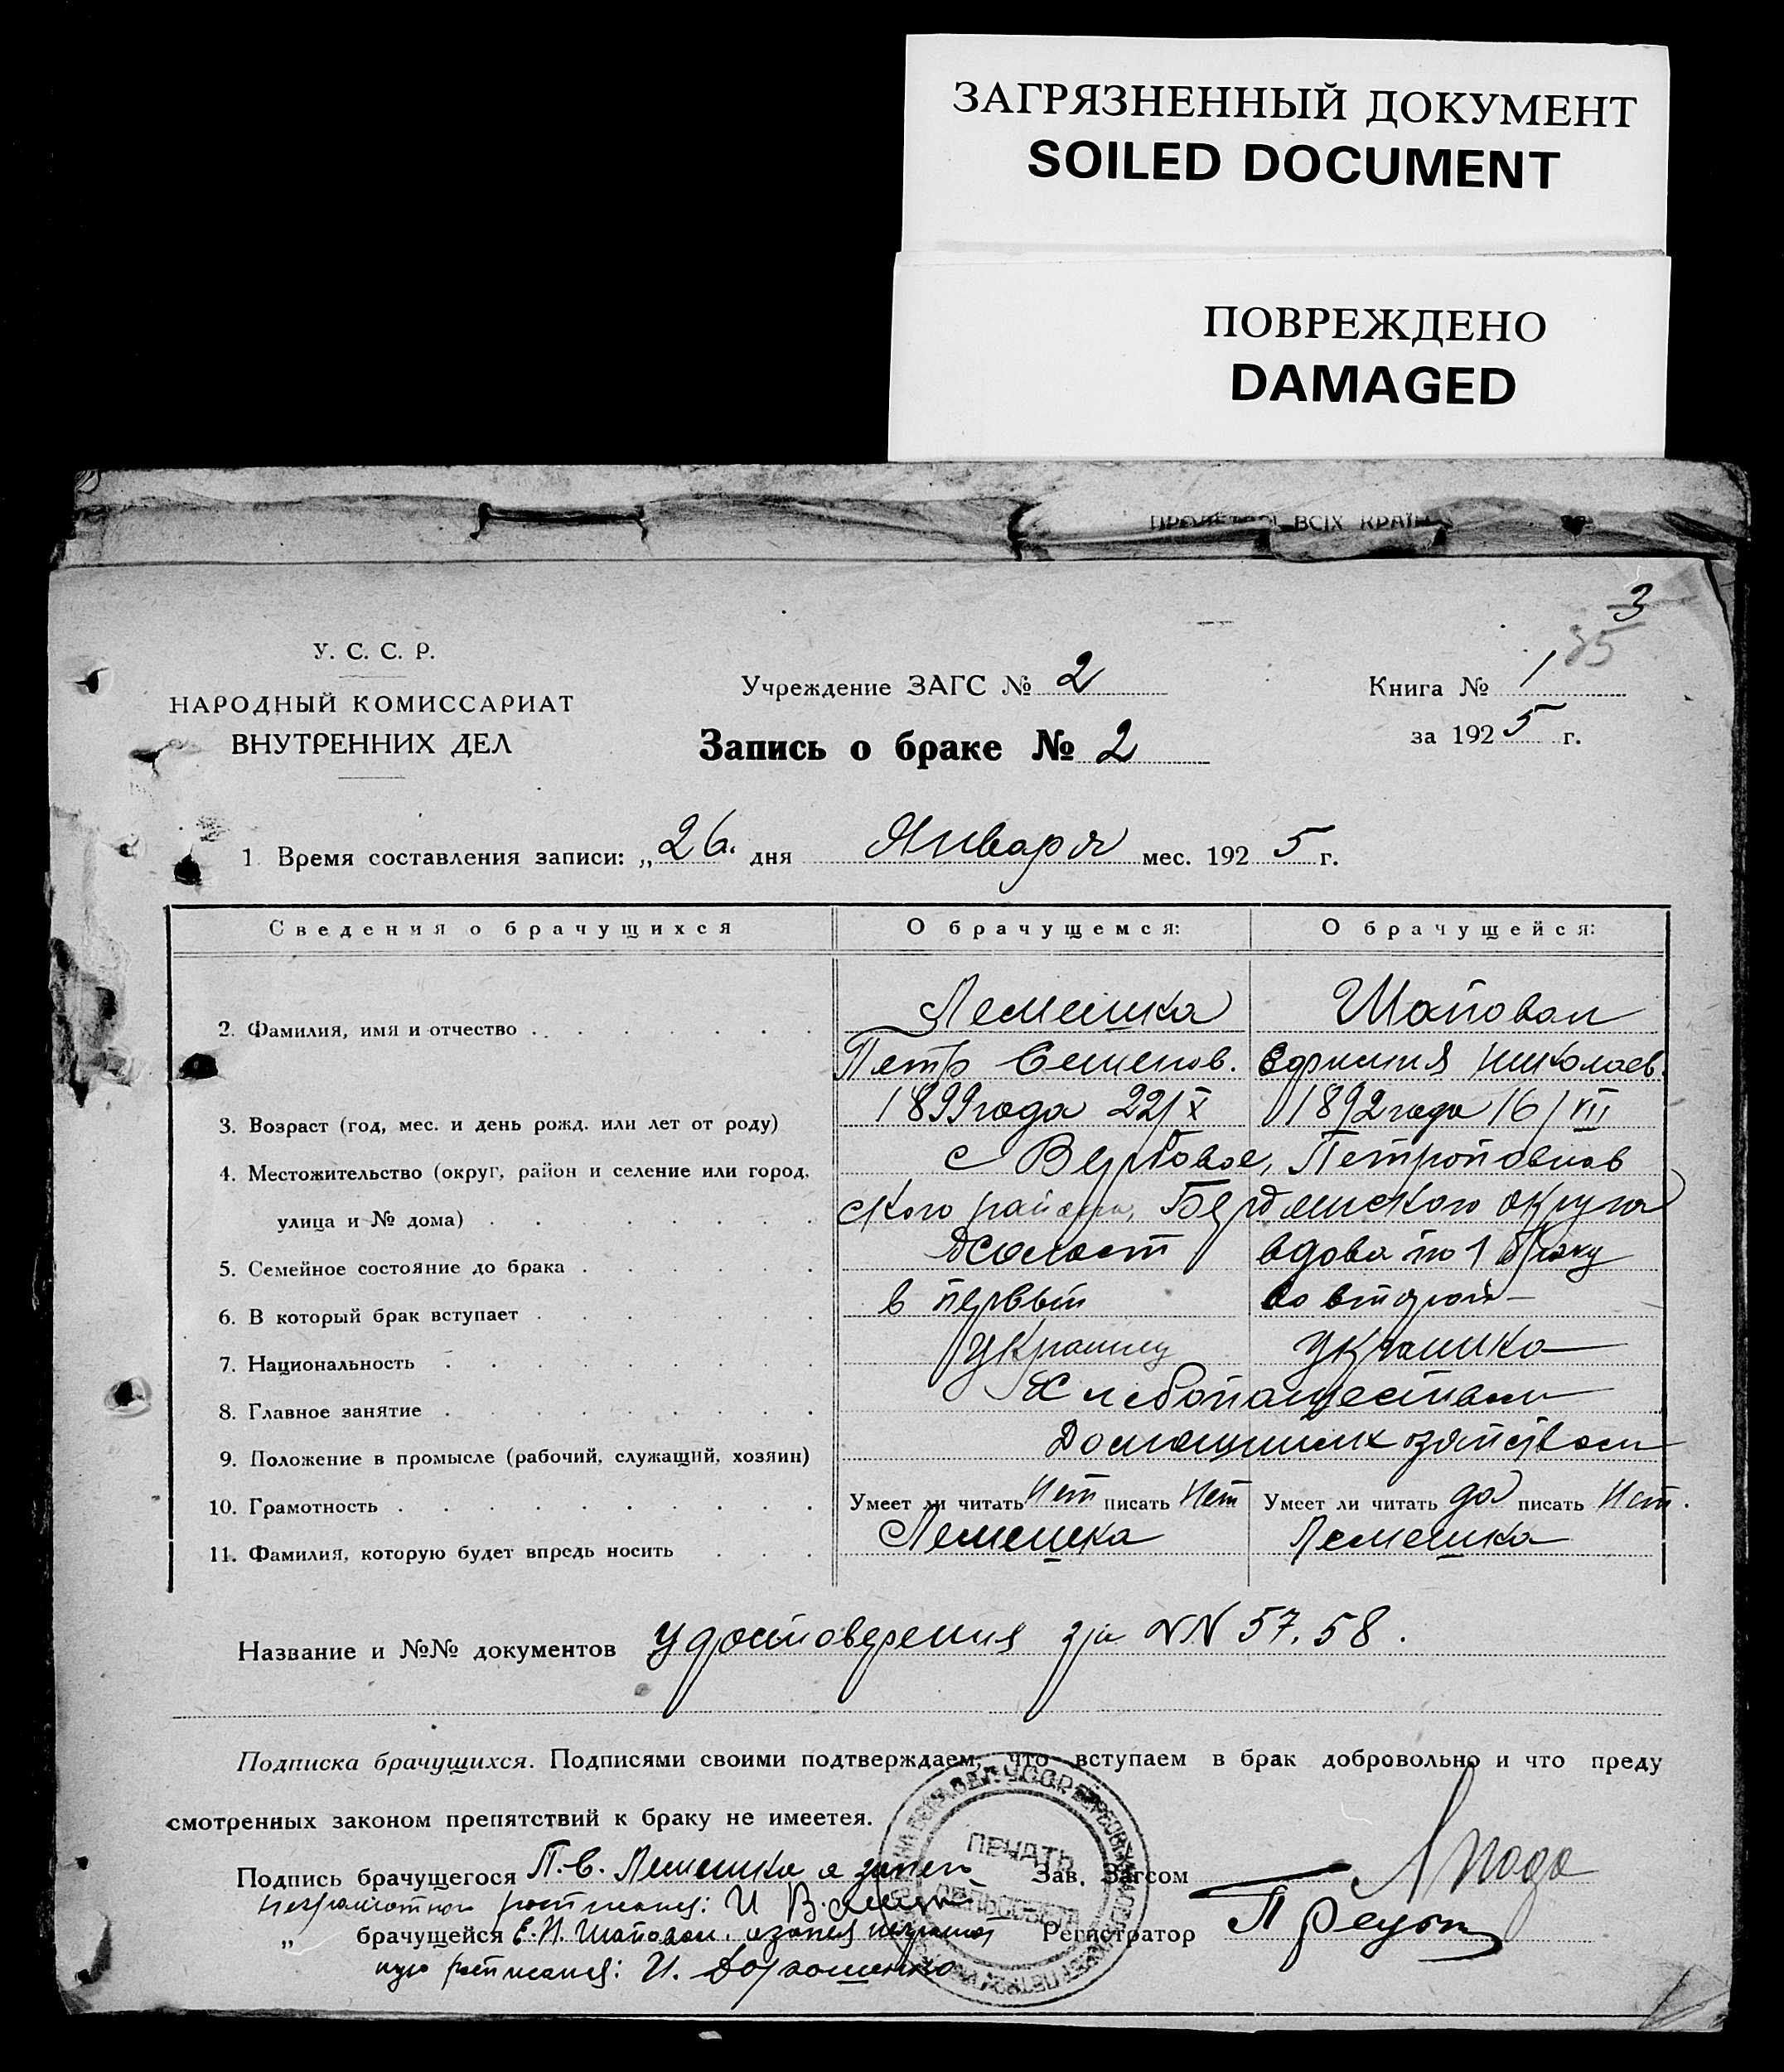 ЗАГРЯЗНЕННЫЙ ДОКУМЕНТ
SOILED DOCUMENT
ПОВРЕЖДЕНО
DAMAGED
ВСІХ КРАЇН
3
35
У. С. С. Р.
НАРОДНЫЙ КОМИССАРИАТ
ВНУТРЕННИХ ДЕЛ
Учреждение ЗАГС № 2
Книга № 1
за 1925 г.
Запись о браке № 2
1 Время составления записи: „26. дня Января мес. 1925 г.
Сведения о брачущихся О брачущемся: О брачущейся:
2. Фамилия, имя и отчество Лемешка Шаповал
Петр Семенов. Ефимия Николаев.
3. Возраст (год, мес. и день рожд. или лет от роду) 1899 года 22/X 1892 года 16/VII
4. Местожительство (округ, район и селение или город, с Вербовое, Петроповлов
улица и № дома) ского района, Бердянского округа
5. Семейное состояние до брака холост вдова по 1 браку
6. В который брак вступает в первый во второй
7. Национальность Украинец Украинка
8. Главное занятие Хлебопашеством
9. Положение в промысле (рабочий, служащий, хозяин) Домашним хозяйством
10. Грамотность Умеет ли читать Нет писать Нет Умеет ли читать да писать Нет.
11. Фамилия, которую будет впредь носить Лемешка Лемешка
Название и №№ документов удостоверения за NN 57, 58.
Подписка брачущихся. Подписями своими подтверждаем, что вступаем в брак добровольно и что преду
смотренных законом препятствий к браку не имеетея.
Подпись брачущегося П. С. Лемешка а за него Зав. Загсом
неграмотного росписался: И
„ брачущейся Е. Н. Шаповал. а за нея неграмот Регистратор
ную росписался: И. Дорошенко
ПЕЧАТЬ
СЕЛЬСОВЕТА